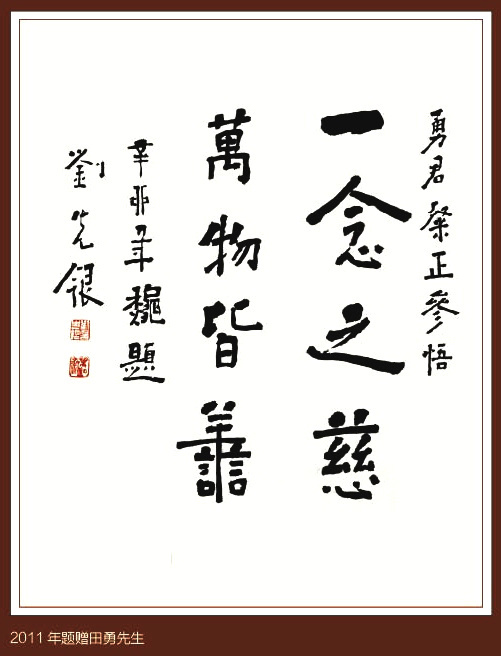 勇君粲正參悟
一念之慈
萬物皆譱
辛卯年龝題
劉先銀
2011 年题赠田勇先生